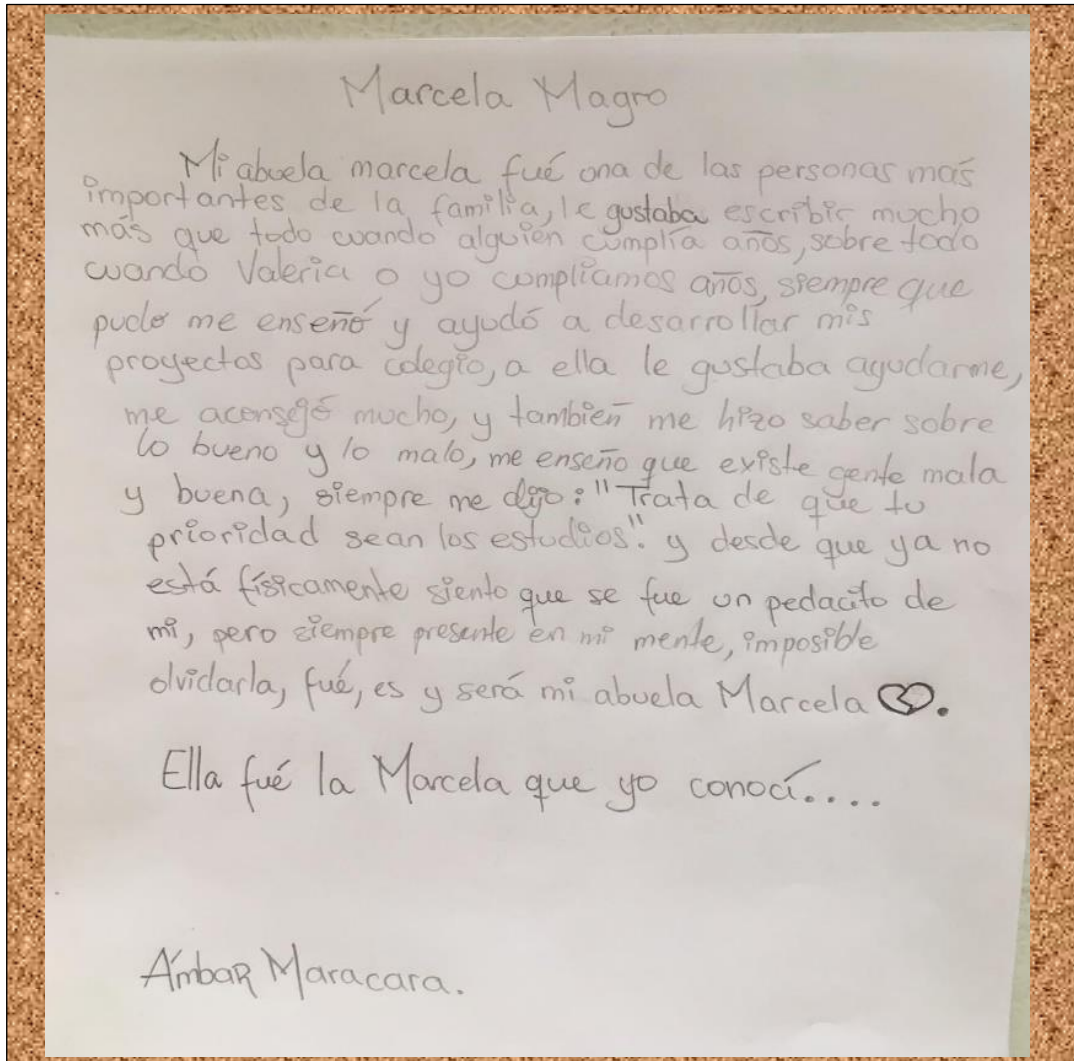 Marcela Magro
Mi abuela marcela fué una de las personas más
importantes de la familia, le gustaba escribir mucho
más que todo cuando alguién cumplía años, sobre todo
cuando Valeria o yo cumpliamos años, siempre que
pudo me enseñó y ayudó a desarrollar mis
proyectos para colegio, a ella le gustaba ayudarme,
me aconsejó mucho, y también me hizo saber sobre
lo bueno y lo malo, me enseño que existe gente mala
y buena, siempre me dijo: "Trata de que tu
prioridad sean los estudios". y desde que ya no
está físicamente siento que se fue un pedacito de
mi, pero siempre presente en mi mente, imposible
olvidarla, fué, es y será mi abuela Marcela 💔.
Ella fué la Marcela que yo conocí....
Ámbar Maracara.